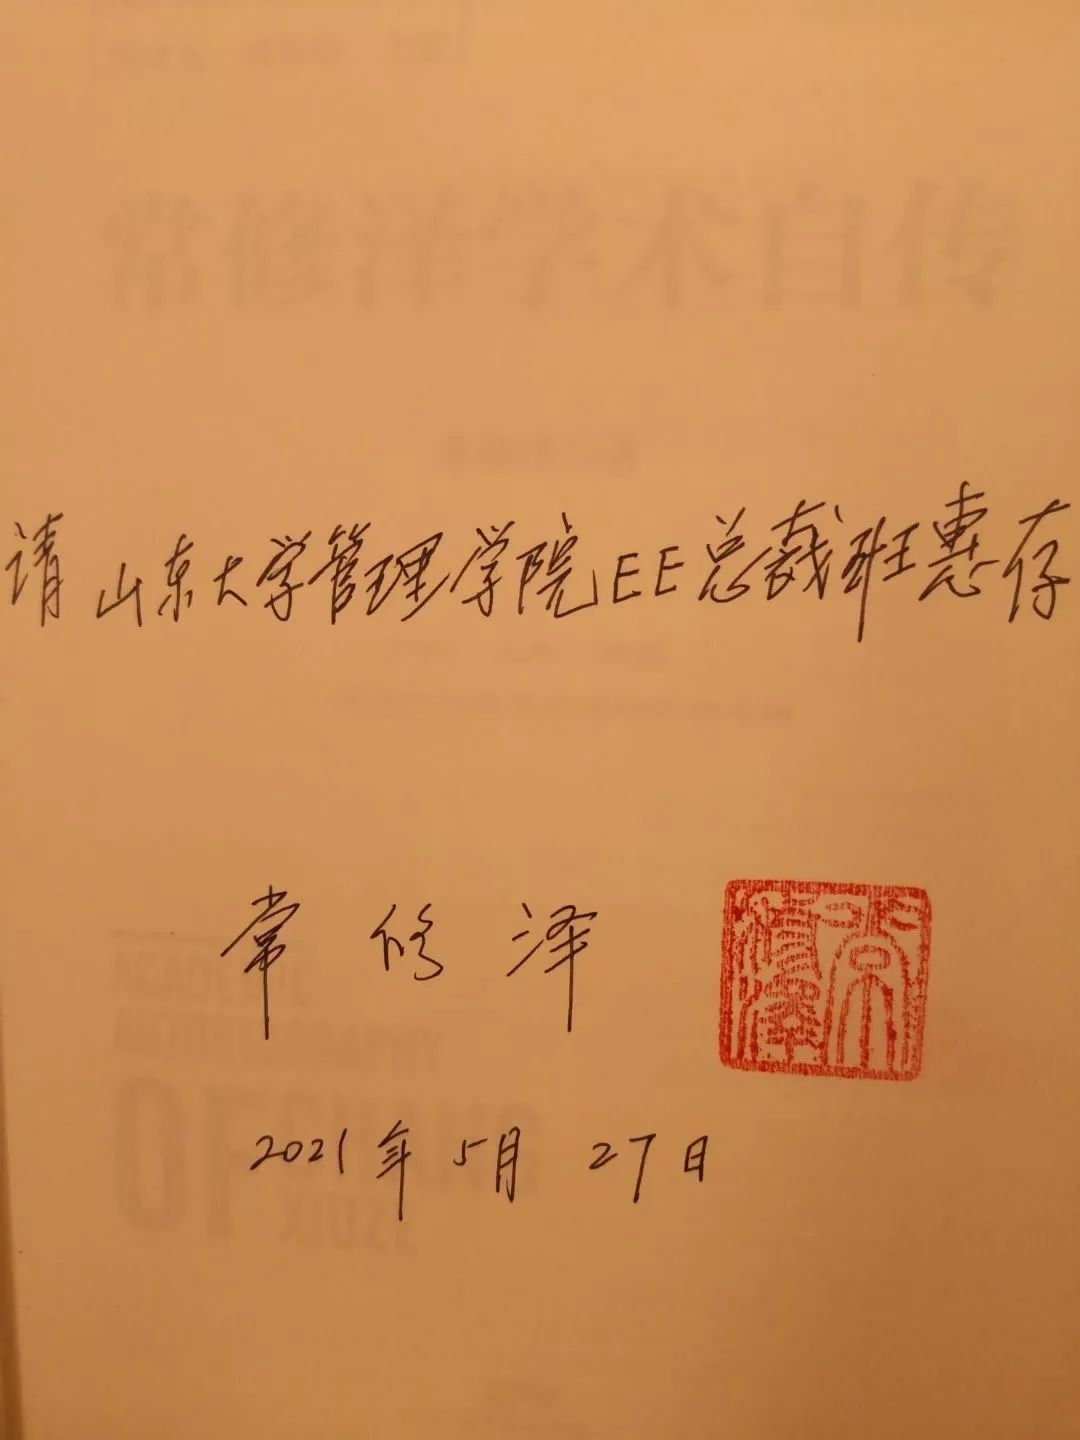 常修泽学术自传
请山东大学管理学院EE总裁班惠存
常修泽
2021年5月27日